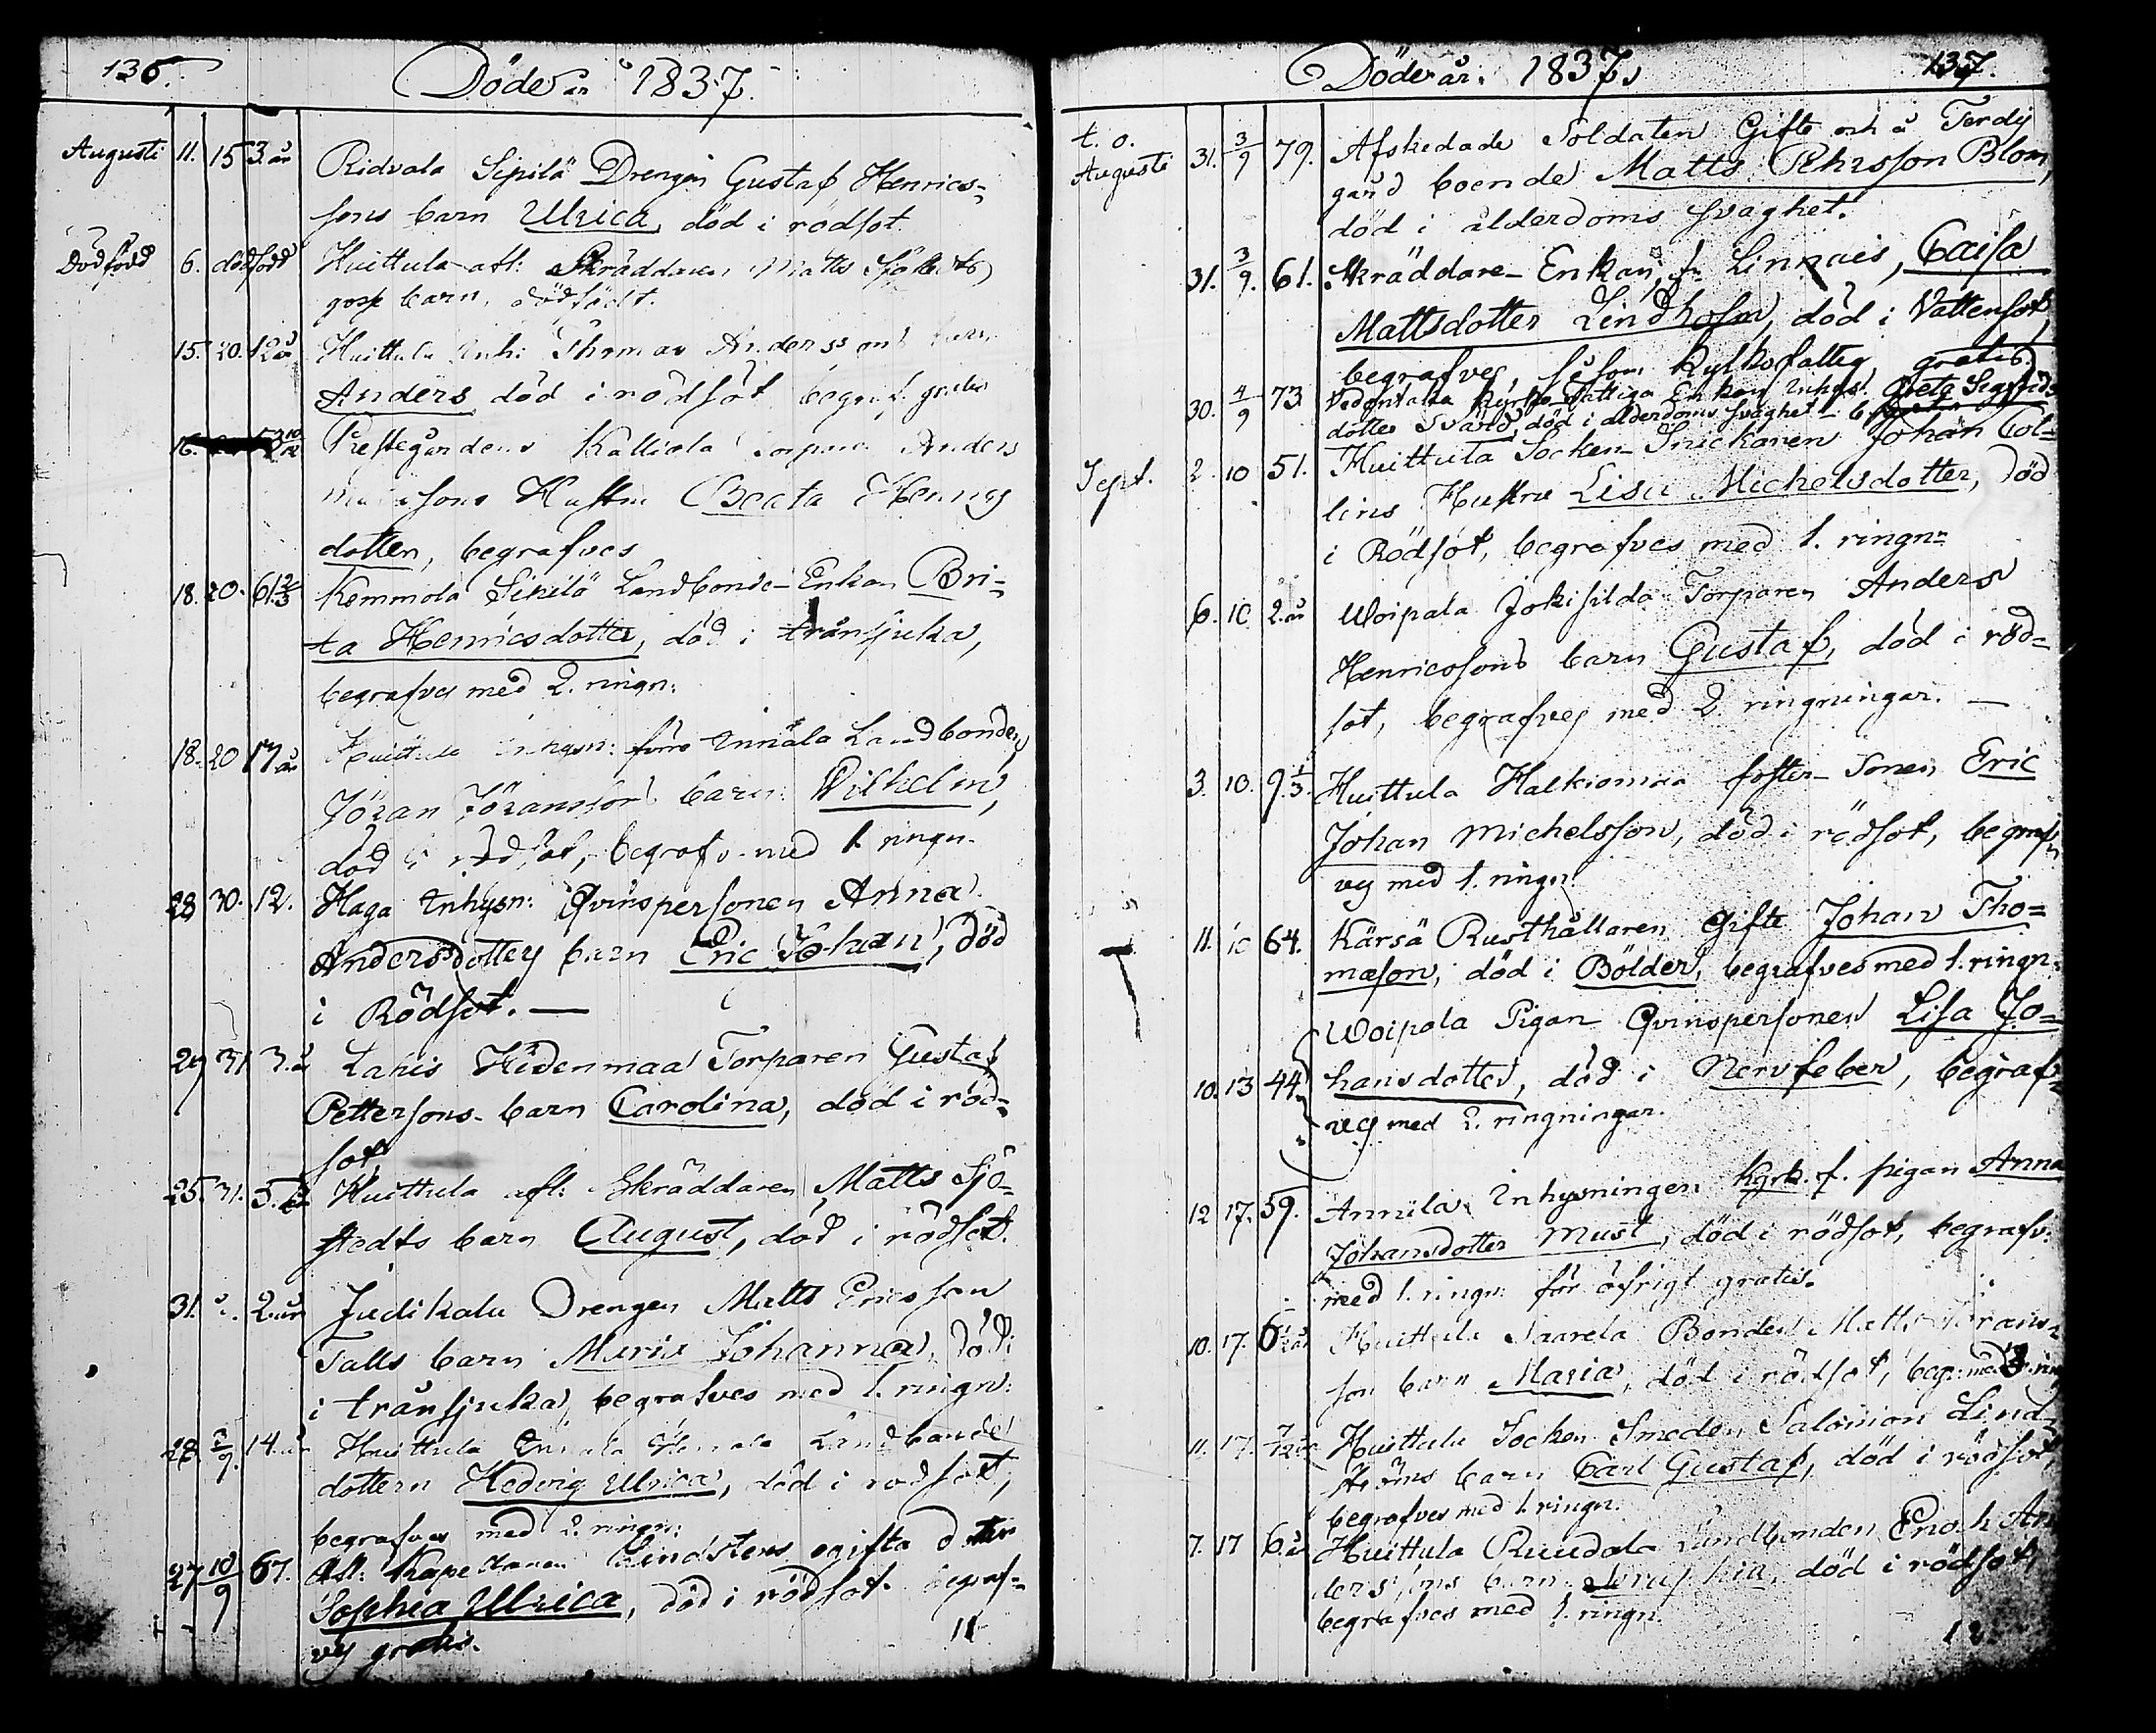 136.
Döde år 1837.
Augusti 11. 15 3. år Ridvala Sipilä Drengen Gustaf Henrics-
sons barn Ulrica, död i rödsot.
Dödfödd 6. dödfödd Huittula afl: Skräddaren Matts Sjöstedts
gosse barn, dödfödt.
15. 20. Huittula Inh: Thomas Anderssons barn
Anders död i rödsot begraf. gratis
16. Prestegårdens Kalliola Torparen Anders
sons Hustru Beata Henrics
dotter, begrafves
18. 20. 61 2/3 Kemmola Sipilä Landbonde-Enkan Bri-
ta Henricsdotter, död i trånsjuka,
begrafves med 2. ringn:
18. 20 17 år Huittula Inhysn: förre Annala Landbonden
Jöran Jöranssons barn Wilhelm,
död i rödsot, begrafv. med 1. ringn.
28 30. 12. Haga Inhysn: Qvinspersonen Anna
Andersdotters barn Eric Johan, död
i Rödsot. —
29 31 3. år Lahis Hidenmaa Torparen Gustaf
Pettersons barn Carolina, död i röd-
sot
25. 31. 5. år Huittula afl: Skräddaren Matts Sjö-
stedts barn August, död i rödsot.
31. 2. år Judikala Drengen Matts Ericsson
Talls barn Maria Johanna, död
i trånsjuka, begrafves med 1. ringn:
28. 3/9. 14. år Huittula Landbonde
dottern Hedvig Ulrica, död i rodsot,
begrafves med 2. ringn:
27 10/9 67. Afl: Kapellanen Lindsteds ogifta dotter
Sophia Ulrica, död i rödsot begraf-
ves gratis.
11
Döde år 1837.
137.
t. o.
Augusti 31. 3/9 79. Afskedade Soldaten Gifte och å Terdi
gård boende Matts Pehrsson Blom,
död i ålderdoms svaghet.
31. 3/9. 61. Skräddare-Enkan, fr. Linnais, Caisa
Mattsdotter Lindholm, död i Vattensot,
begrafves, såsom Kyrkofattig gratis.
30. 4/9 73. Kyrko-Fattiga Enkan Inhys. Greta Sigfrids
dotter Svärd, död i ålderdoms svaghet
Sept. 2. 10 51. Huittula Socken-Snickaren Johan Col-
lins Hustru Lisa Michelsdotter, död
i Rödsot, begrafves med 1. ringn-
6. 10 2. år Woipala Jokisilda Torparen Anders
Henricssons barn Gustaf, död i röd-
sot, begrafves med 2. ringningar. —
3. 10. 9 1/3. Huittula Halkiomaa foster-Sonen Eric
Johan Michelsson, död i rödsot, begraf-
ves med 1. ringn:
11. 10 64. Kärsä Rusthållaren Gifte Johan Tho-
masson, död i Bölder, begrafves med 1. ringn:
Woipala Pigan Qvinspersonen Lisa Jo-
10. 13 44. hansdotter, död i Nervfeber, begraf-
ves med 2. ringningar.
12 17. 59. Annila Inhysningen Kyrk. f. pigan Anna
Johansdotter Must, död i rödsot, begrafv:
med 1. ringn: för öfrigt gratis.
10. 17. Huittula Saarela Bonden Matts Jörans-
son barn Maria, död i rödsot, begr: med 3. ring
11. 17. Huittula Socken Smeden Salomon Lind-
ströms barn Carl Gustaf, död i rödsot,
begrafves med 1. ringn.
7. 17 6. år Huittula Ruudala Landbonden Enoch An
derssons barn Seraphia, död i rödsot,
begrafves med 1. ringn.
12